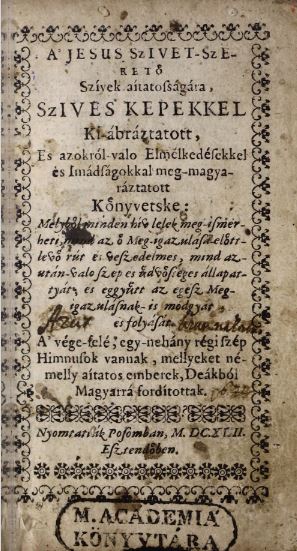 A' JESUS SZIVET-SZE-
RETŐ
Szivek aitatosságára,
SZIVES KEPEKKEL
KI-ábráztatott,
Es azokról-valo Elmélkedésekkel
és Imádságokkal meg-magya-
ráztatott
Kőnyvetske:
Melyből minden hiv lelek meg-ismér-
heti, mind az ő Meg-igazulása előtt-
levő rút és veszedelmes, mind az-
után-valo szép és üdvősséges állapat-
tyát; es eggyütt az egesz Meg-
igazulásnak-is modgyát
és folyását.
A' vége-felé, egy-nehány régi szép
Himnusok vannak, mellyeket né-
melly aitatos emberek, Deákból
Magyarrá fordítottak.
Nyomtatták Posomban, M. DC.XLII.
Esztendőben.
M. ACADEMIA
KÖNYVTÁRA